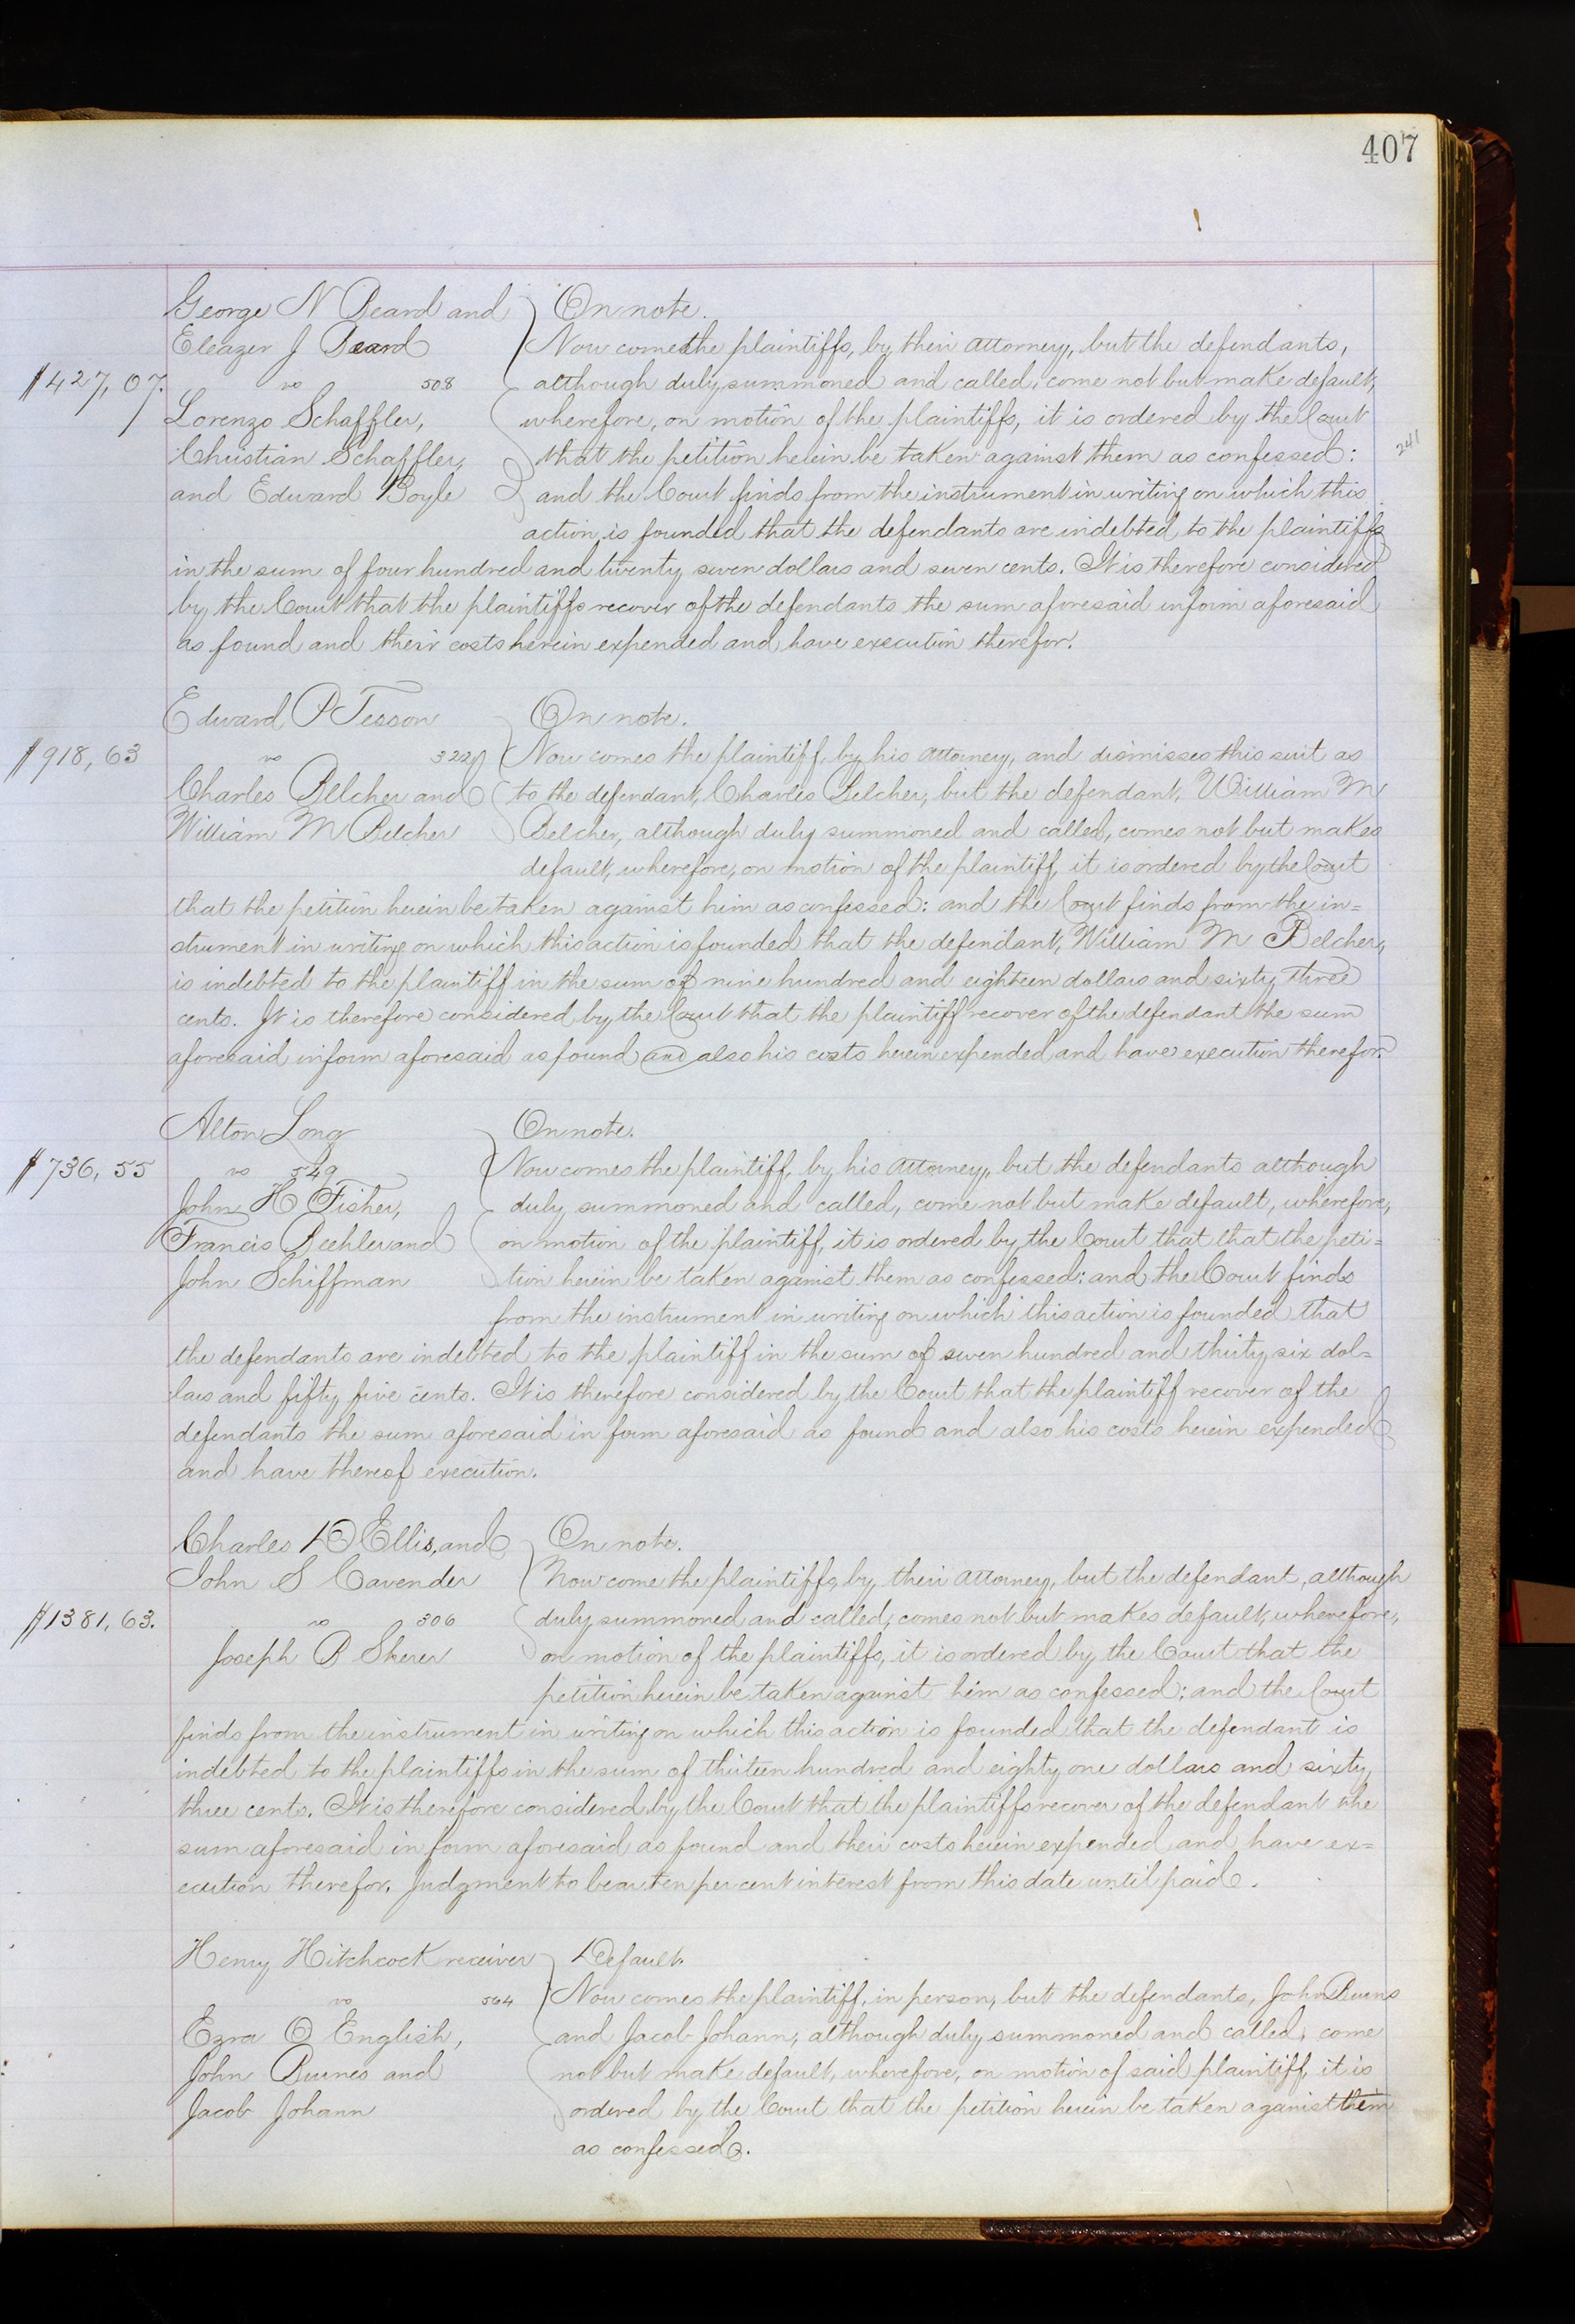 407
George N Beard and
Eleazer J Beard
$427,07.
vs 508
Lorenzo Schaffler,
Christian Schaffler,
and Edward Boyle
On note.
Now comes the plaintiffs, by their attorney, but the defendants,
although duly summoned and called, come not but make default,
wherefore, on motion of the plaintiffs, it is ordered by the Court
that the petition herein be taken against them as confessed:
241
and the Court finds from the instrument in writing on which this
action is founded that the defendants are indebted to the plaintiffs
in the sum of four hundred and twenty seven dollars and seven cents. It is therefore considered
by the Court that the plaintiffs recover of the defendants the sum aforesaid in form aforesaid
as found and their costs herein expended and have execution therefor.
Edward P Tesson
$918,63
vs 322
Charles Belcher and
William M Belcher
On note.
Now comes the plaintiff, by his attorney, and dismisses this suit as
to the defendant, Charles Belcher, but the defendant, William M
Belcher, although duly summoned and called, comes not but makes
default, wherefore, on motion of the plaintiff, it is ordered by the Court
that the petition herein be taken against him as confessed: and the Court finds from the in=
strument in writing on which this action is founded that the defendant, William M Belcher,
is indebted to the plaintiff in the sum of nine hundred and eighteen dollars and sixty three
cents. It is therefore considered by the Court that the plaintiff recover of the defendant the sum
aforesaid in form aforesaid as found and also his costs herein expended and have execution therefor.
Alton Long
$736,55
vs 549
John H Fisher,
Francis Beehler and
John Schiffman
On note.
Now comes the plaintiff, by his attorney, but the defendants although
duly summoned and called, come not but make default, wherefore,
on motion of the plaintiff, it is ordered by the Court that that the peti=
tion herein be taken against them as confessed: and the Court finds
from the instrument in writing on which this action is founded that
the defendants are indebted to the plaintiff in the sum of seven hundred and thirty six dol=
lars and fifty five cents. It is therefore considered by the Court that the plaintiff recover of the
defendants the sum aforesaid in form aforesaid as found and also his costs herein expended
and have thereof execution.
Charles D Ellis, and
John S Cavender
$1381,63.
vs 306
Joseph B Sherer
On note.
Now come the plaintiffs, by their attorney, but the defendant, although
duly summoned and called, comes not but makes default, wherefore,
on motion of the plaintiffs, it is ordered by the Court that the
petition herein be taken against him as confessed: and the Court
finds from the instrument in writing on which this action is founded that the defendant is
indebted to the plaintiffs in the sum of thirteen hundred and eighty one dollars and sixty
three cents. It is therefore considered by the Court that the plaintiffs recover of the defendant the
sum aforesaid in form aforesaid as found and their costs herein expended and have ex=
ecution therefor. Judgment to bear ten per cent interest from this date until paid.
Henry Hitchcock receiver
vs 564
Ezra O English,
John Burnes and
Jacob Johann
Default.
Now comes the plaintiff, in person, but the defendants, John Burns
and Jacob Johann, although duly summoned and called, come
not but make default, wherefore, on motion of said plaintiff, it is
ordered by the Court that the petition herein be taken against them
as confessed.